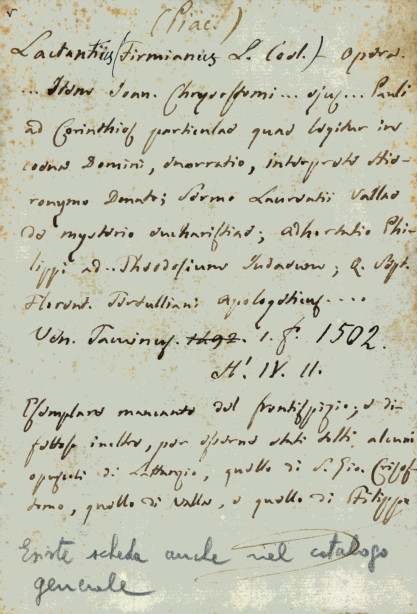 (Piac.)
Lactantius (Firmianus L. Coel.) - Opera.
... Item Joan. Chrysostomi ... ejus ... Pauli
ad Corinthios particulas quas legitur in
coena Domini, enarratio, interprete Hie-
ronymo Donato; Sermo Laurentii Vallae
de mysterio eucharistiae; adhortatio Phi-
lippi ad .. Theodosium Judaeum; Q. Sept.
Florent. Tertulliani Apologeticus ....
Ven. Tacuinus. 1492. 1. f.° 1502.
H! IV. 11.
Esemplare mancante del frontispizio; e di-
fettoso inoltre, per essere stati tolti alcuni
opuscoli di Lattanzio, quello di S. Gio. Crisos-
tomo, quello di Valla, e quello di Filippo
Esiste scheda anche nel catalogo
generale